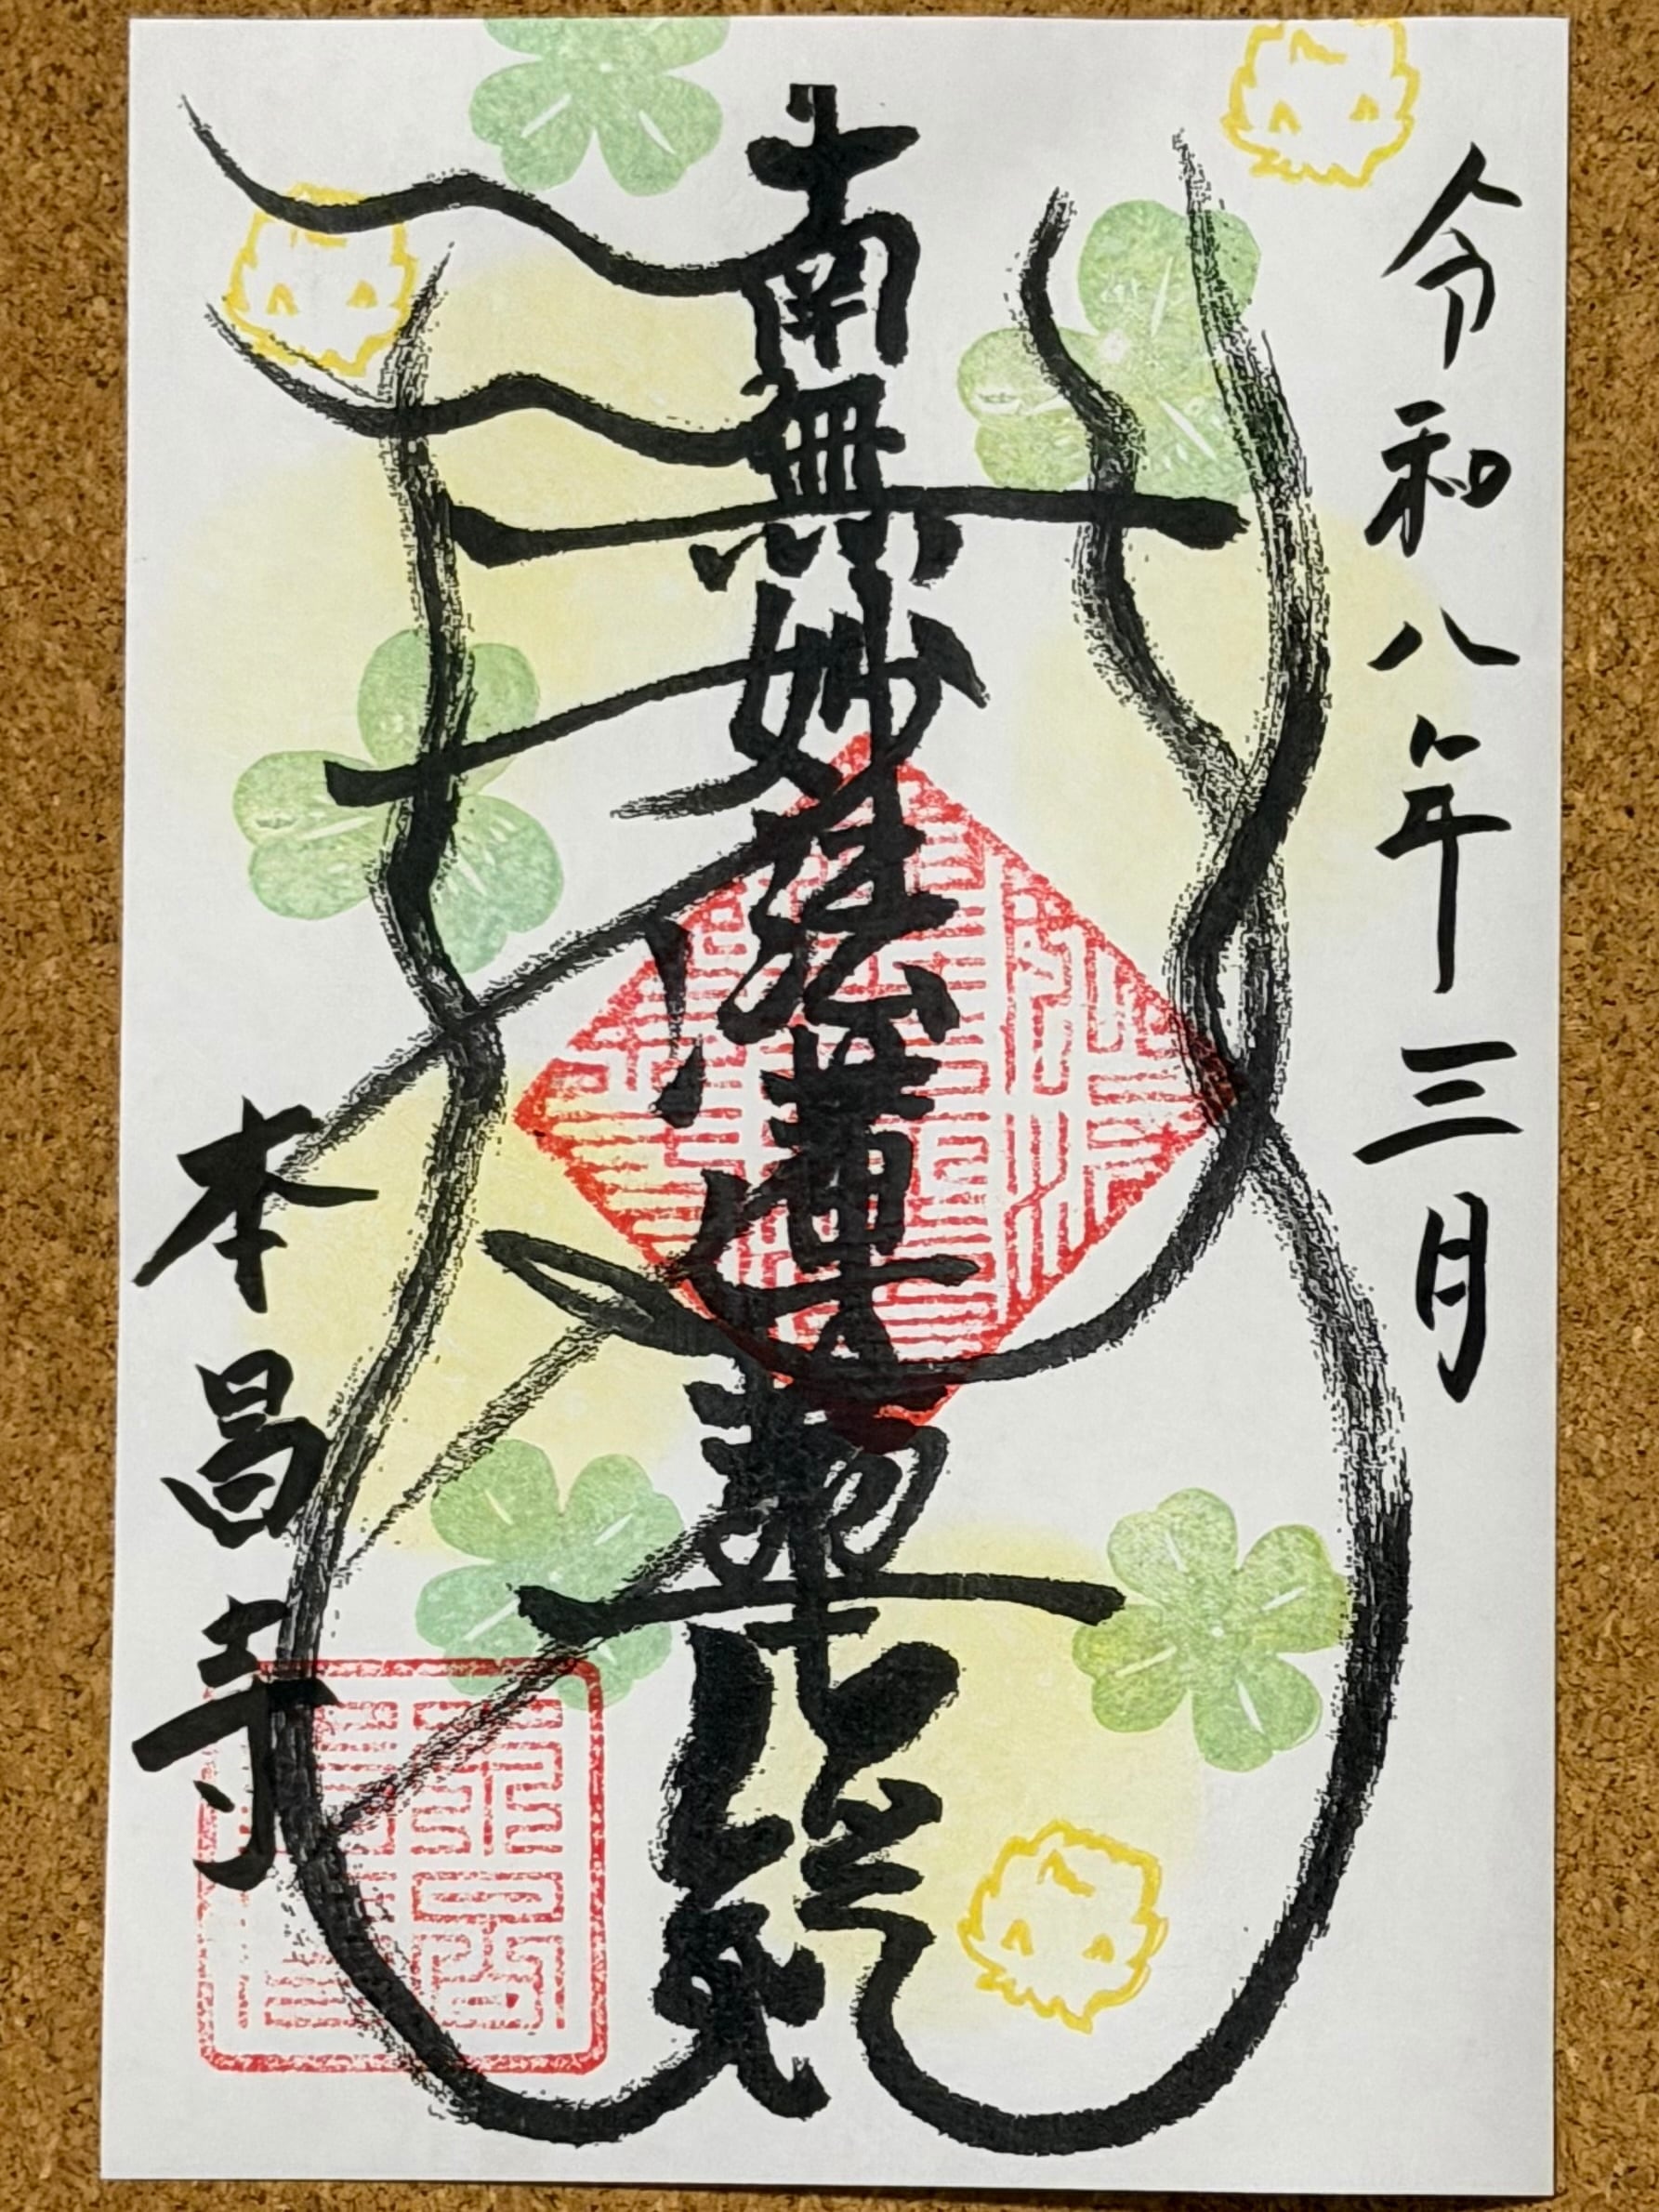 令和八年三月
南無妙法蓮華経
本昌寺